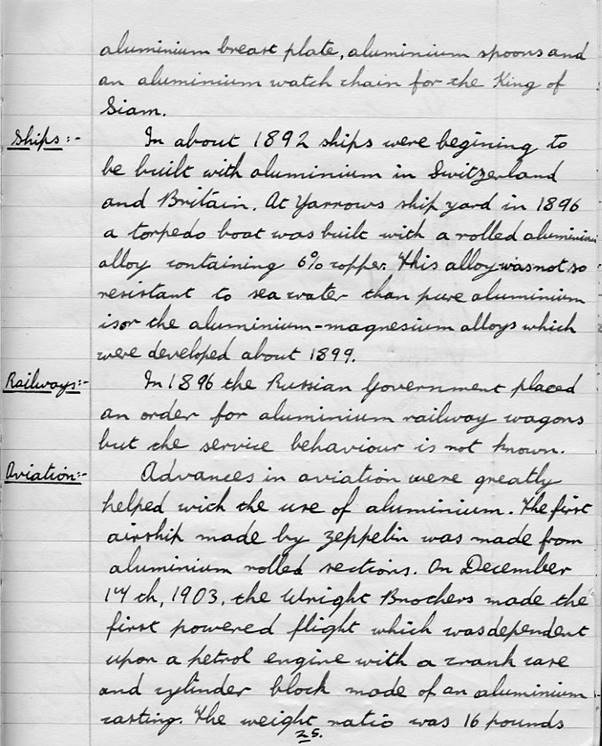 aluminium breast plate, aluminium spoons and
an aluminium watch chain for the King of
Siam.
Ships:- In about 1892 ships were begining to
be built with aluminium in Switzerland
and Britain. At Yarrows ship yard in 1896
a torpedo boat was built with a rolled aluminium
alloy containing 6% copper. This alloy was not so
resistant to sea water than pure aluminium
isor the aluminium-magnesium alloys which
were developed about 1899.
Railways:- In 1896 the Russian Government placed
an order for aluminium railway wagons
but the service behaviour is not known.
Aviation:- Advances in aviation were greatly
helped with the use of aluminium. The first
airship made by zeppelin was made from
aluminium rolled sections. On December
17th, 1903, the Wright Brothers made the
first powered flight which was dependent
upon a petrol engine with a crank case
and cylinder block made of an aluminium
casting. The weight ratio was 16 pounds
25.